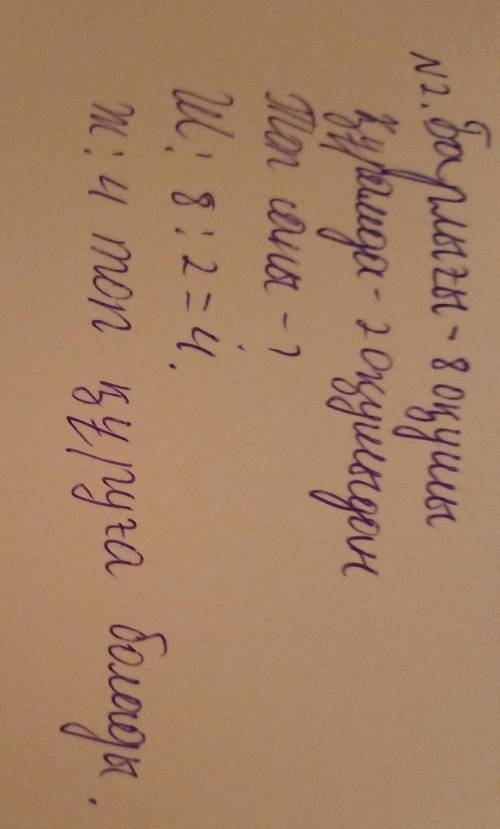 №2. Барлығы - 8 оқушы
құрамда - 2 оқушыдан
Топ саны - ?
Ш: 8 : 2 = 4.
Ж: 4 топ құруға болады.